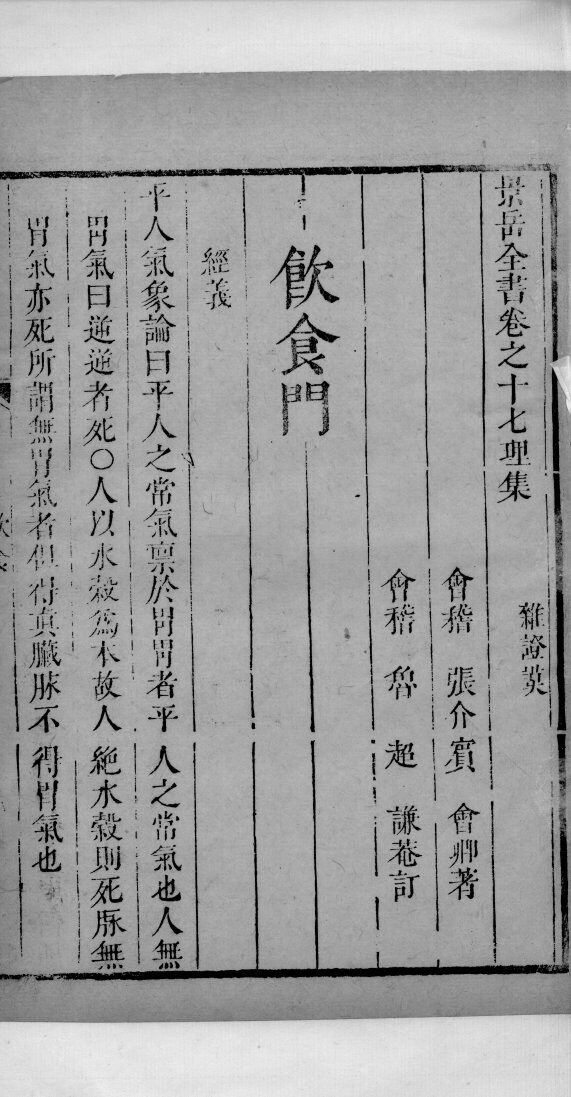 景岳全書卷之十七理集
雜證謨
會稽 張介賓 會卿著
會稽 魯超 謙菴訂
飲食門
經義
平人氣象論曰平人之常氣禀於胃胃者平人之常氣也人無
胃氣曰逆逆者死○人以水穀爲本故人絶水穀則死脉無
胃氣亦死所謂無胃氣者但得真臟脉不得胃氣也